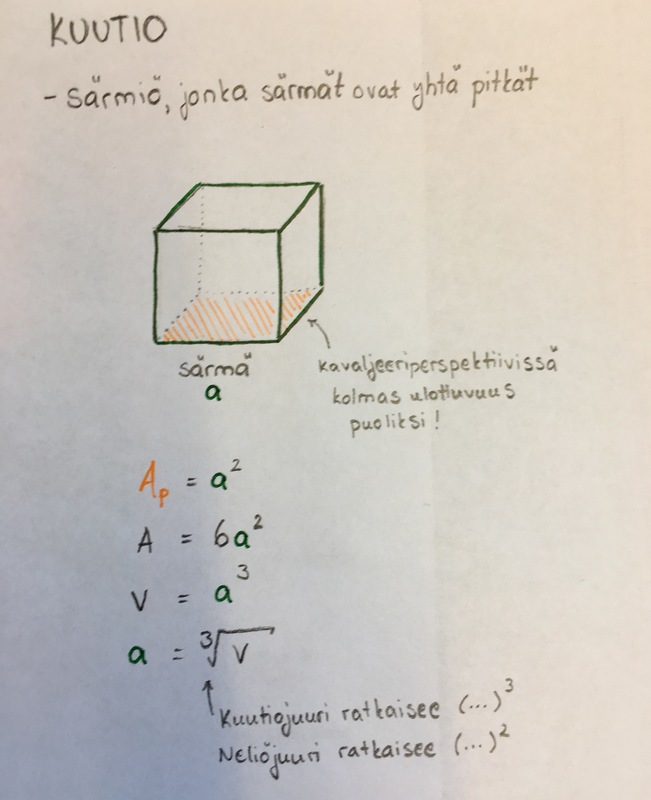 KUUTIO
- särmiö, jonka särmät ovat yhtä pitkät
särmä
a
kavaljeeriperspektiivissä
kolmas ulottuvuus
puoliksi!
Aₚ = a²
A = 6a²
V = a³
a = ³√V
Kuutiojuuri ratkaisee (...)³
Neliöjuuri ratkaisee (...)²